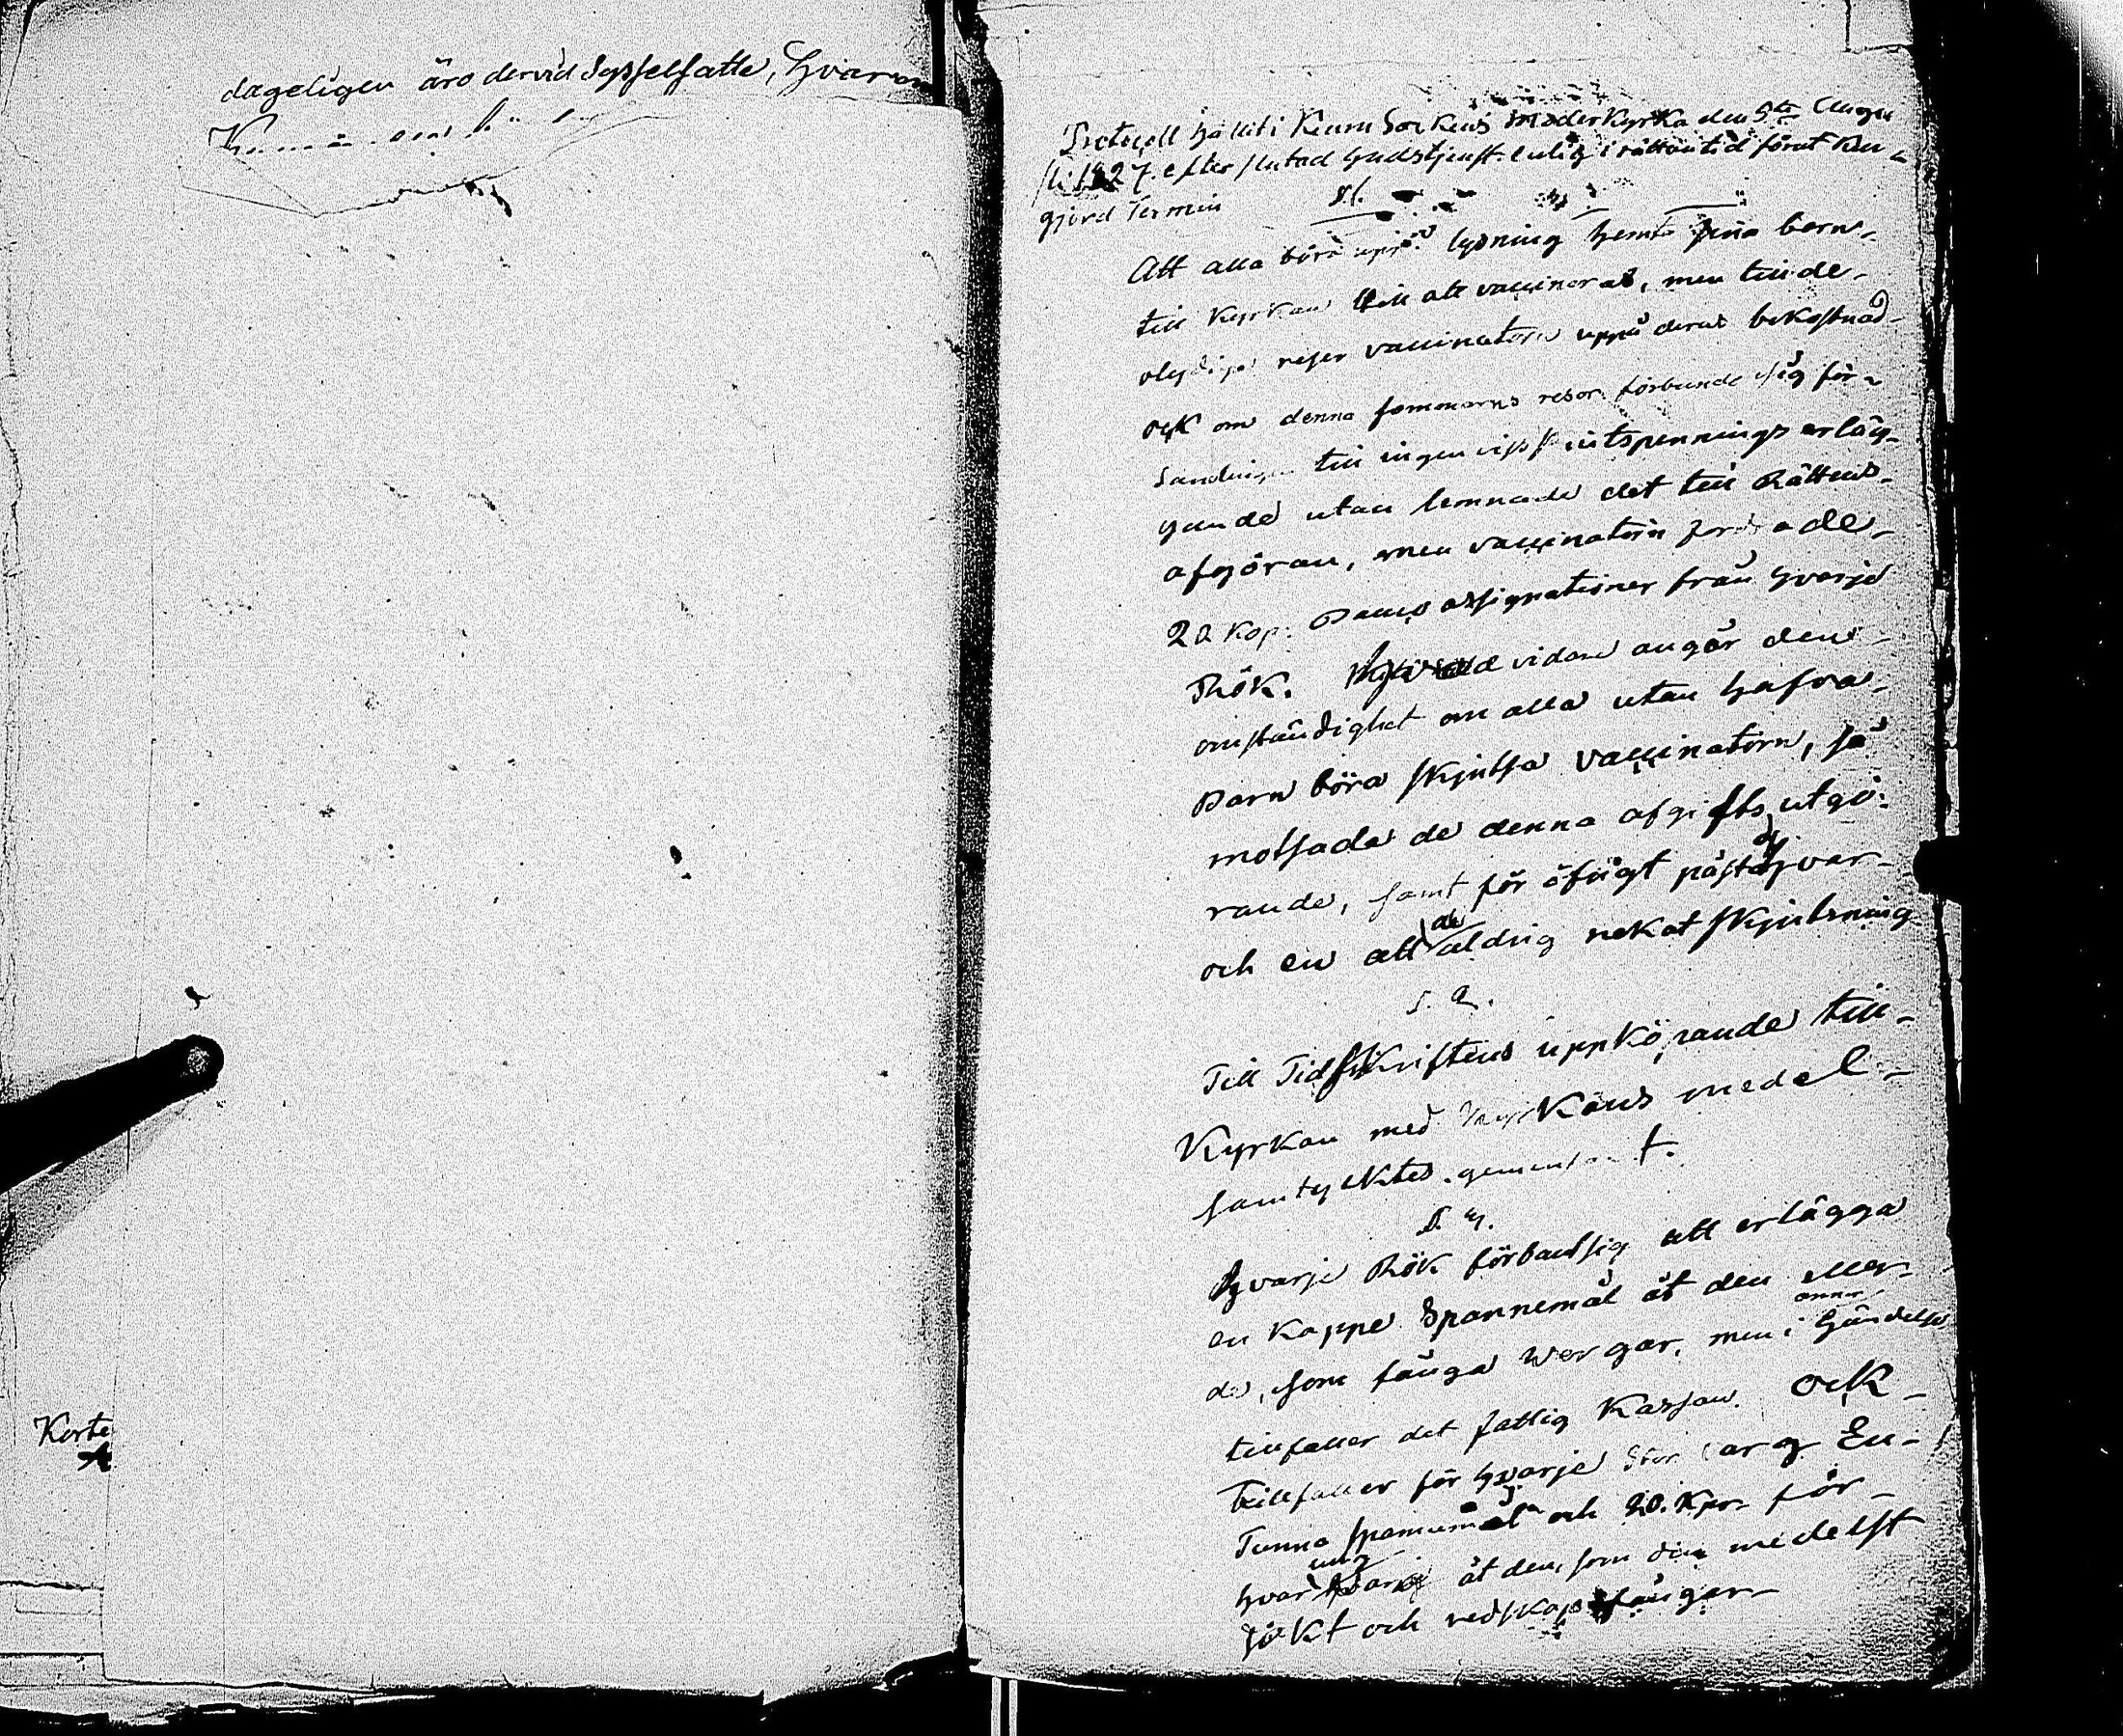 dageligen äro dervid Sysselsatte, hvarom
Korte
Protocoll hållit i Kumo Sockens moderkyrka den 5te Augu
sti 1827. efter slutad Gudstjenst enlig i rättan tid förut kun
gjord Termin
§1.
Att alla böra uppå lysning hemta sina barn
till Kyrkan till att vaccineras, men till de
reser vaccinatorn uppå deras bekostnad
ock om denna sommarns resor förbundo sig för
till ingen viss erläg
gande utan lemnade det till Rättens
afgöran, men vaccinatorn fordrade
20 Kop. Banco assignationer från hvarje
Rök. vidare angår den
omständighet om alla utan hafva
Barn böra skjutsa vaccinatorn, så
motsade de denna afgifts utgö
rande, samt för öfrigt påstod hvar
och en att de aldrig nekat skjutsning
§. 2.
Till Tidskriftens uppköpande till
Kyrkan med Kyrkans medel
samtycktes gemensamt.
§. 3.
Hvarje Rök förbant sig att erlägga
en Kappe Spannemål åt den eller
de, som fånga Wargar, men i annor händelse
tillfaller det fattig Kassan. Ock
tillfaller för hvarje Stor varg En
Tunna Spannemål och 20. Kpr för
hvar unge åt den, som dem medelst
Jakt och redskap fångar